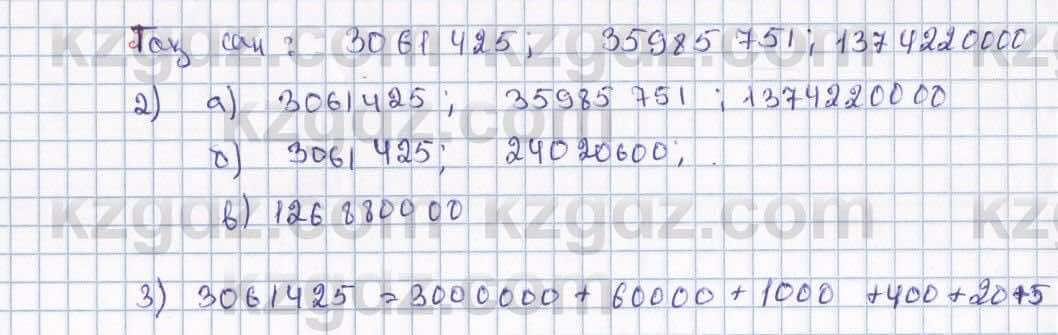 Тақ сан: 3061 425; 35985 751; 1374220000
2) а) 3061425; 35985 751; 1374220000
б) 3061 425; 24020600;
в) 126880000
3) 3061425 = 3000000 + 60000 + 1000 +400+20+5